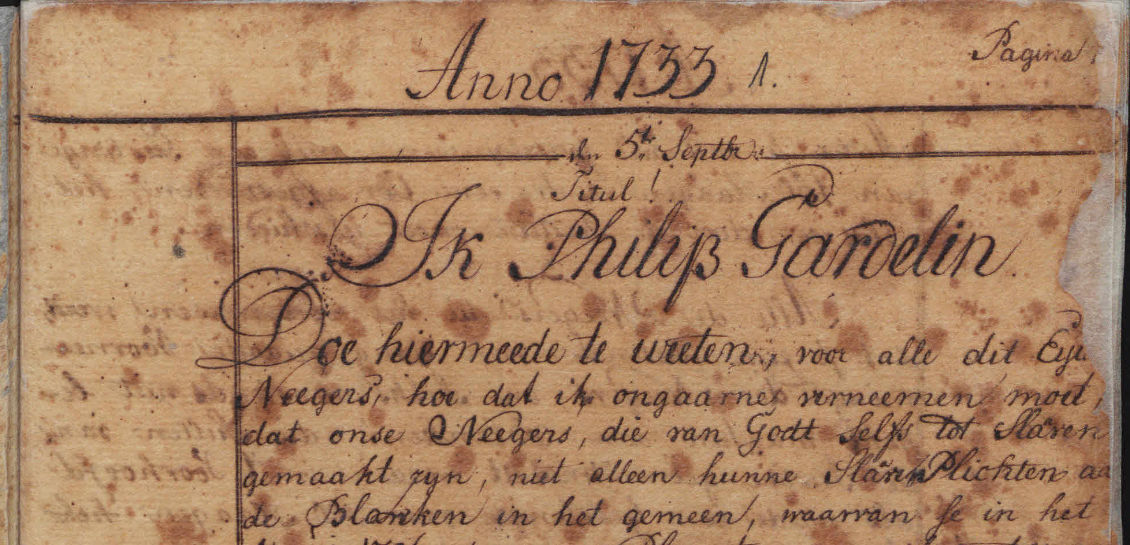 Anno 1733 1.
Pagina
den 5t Septbr:
Titul!
Ik Philip Gardelin.
Doe hiermeede te weeten, voor alle dit
Neegers, hoe dat ik ongaarne verneemen moet,
dat onse Neegers, die van Godt selfs tot Slaven
gemaakt zyn, niet alleen hunne Slaven Plichten
de Blanken in het gemeen, waarvan se in het